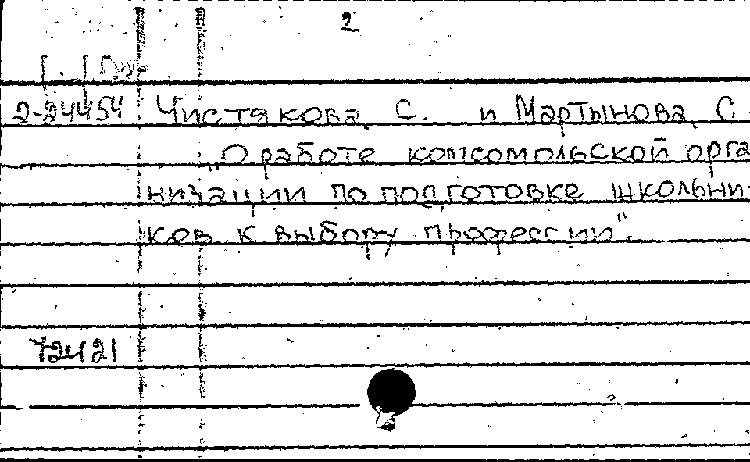 2
2-24454 Чистякова С. и Мартынова С
„О работе комсомольской орга
низации по подготовке школьни-
ков к выбору профессии".
72421